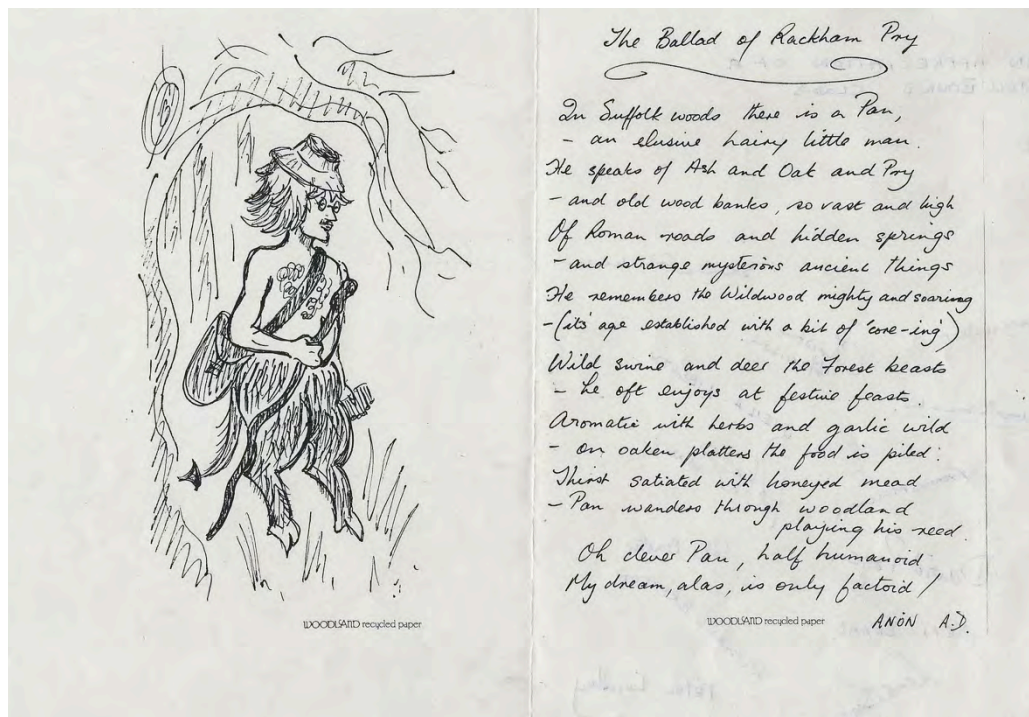 The Ballad of Rackham Pry
In Suffolk woods there is a Pan,
- an elusive hairy little man.
He speaks of Ash and Oak and Pry
- and old wood banks, so vast and high
Of Roman roads and hidden springs
- and strange mysterious ancient things
He remembers the Wildwood mighty and soaring
- (its' age established with a bit of 'core-ing')
Wild swine and deer the Forest beasts
- he oft enjoys at festive feasts.
Aromatic with herbs and garlic wild
- on oaken platters the food is piled.
Thirst satiated with honeyed mead
- Pan wanders through woodland
playing his reed.
Oh clever Pan, half humanoid
My dream, alas, is only factoid!
ANON A.D.
WOODLAND recycled paper
WOODLAND recycled paper